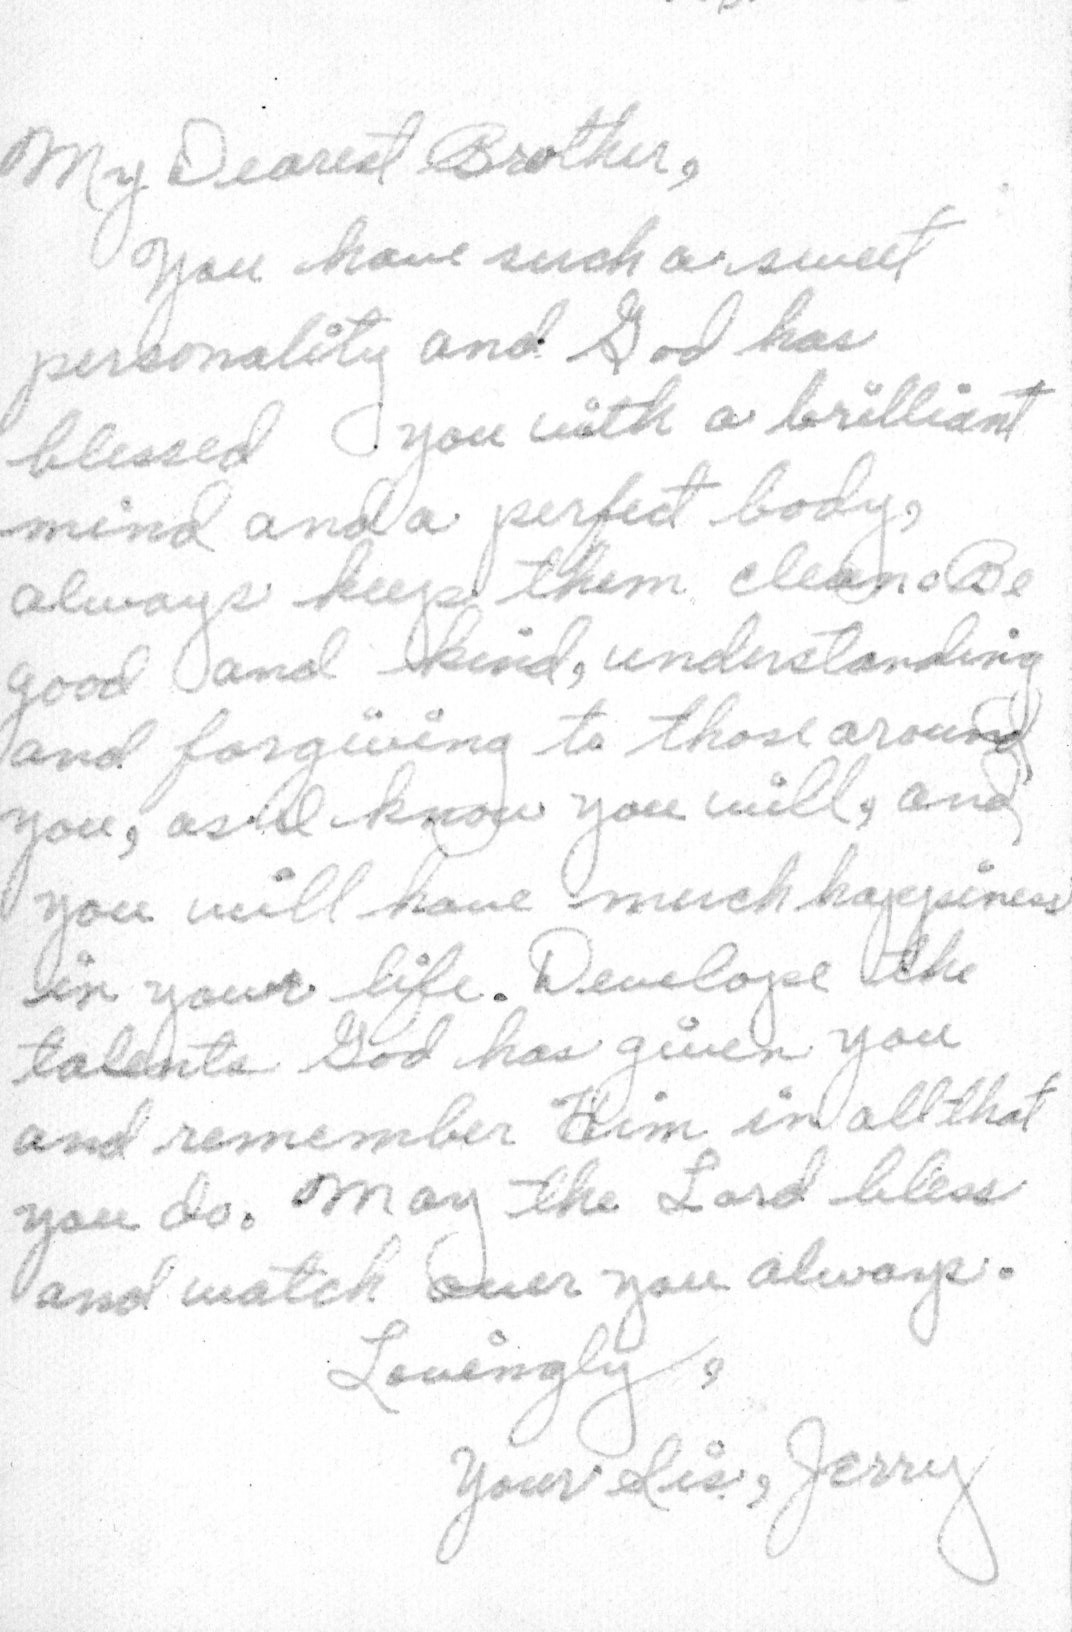 My Dearest Brother,
You have such a sweet
personality and God has
blessed you with a brilliant
mind and a perfect body,
always keep them clean. Be
good and kind, understanding
and forgiving to those around
you, as I know you will, and
you will have much happiness
in your life. Develope the
talents God has given you
and remember Him in all that
you do. May the Lord bless
and watch over you always.
Lovingly,
Your Sis, Jerry